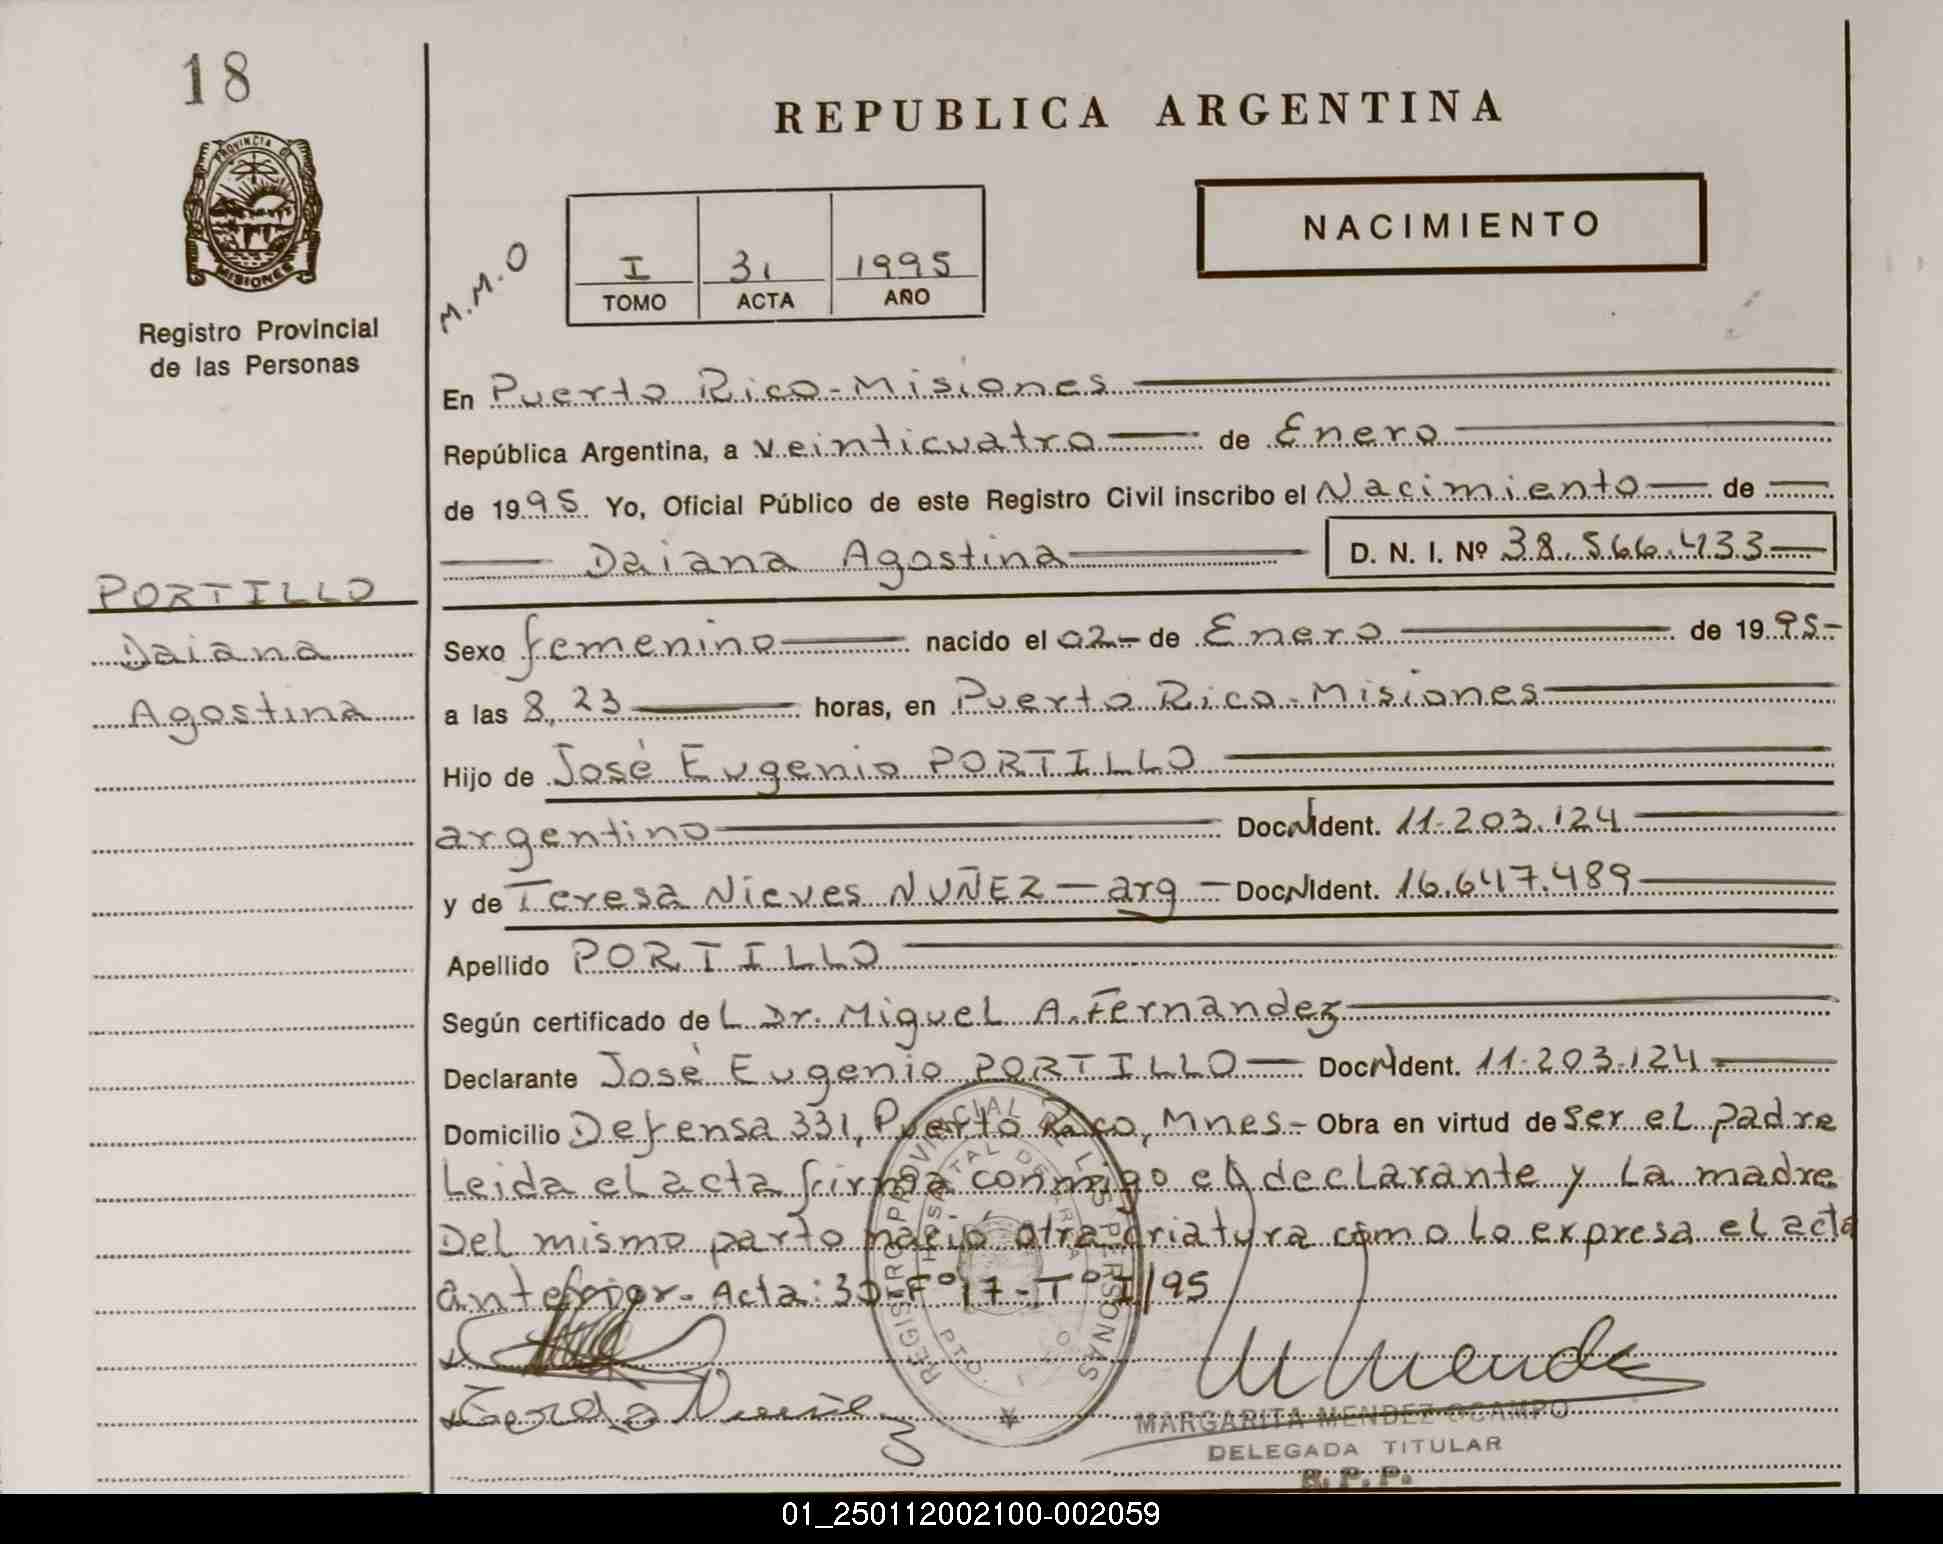 18
REPUBLICA ARGENTINA
PROVINCIA DE
MISIONES
Registro Provincial
de las Personas
M.M.O
I 31 1995
TOMO ACTA AÑO
NACIMIENTO
En Puerto Rico-Misiones
República Argentina, a veinticuatro de Enero
de 1995 Yo, Oficial Público de este Registro Civil inscribo el Nacimiento de
Daiana Agostina D. N. I. Nº 38.566.433
PORTILLO
Daiana
Agostina
Sexo femenino nacido el 02- de Enero de 1995-
a las 8,23 horas, en Puerto Rico-Misiones
Hijo de José Eugenio PORTILLO
argentino Doc.N.Ident. 11.203.124
y de Teresa Nieves NUÑEZ - arg - Doc.N.Ident. 16.647.489
Apellido PORTILLO
Según certificado deL Dr. Miguel A. Fernandez
Declarante José Eugenio PORTILLO Doc.N.Ident. 11.203.124
Domicilio Defensa 331, Puerto Rico, Mnes- Obra en virtud de ser el padre
Leida el acta firma conmigo el declarante y la madre
Del mismo parto nació otra criatura como lo expresa el acta
anterior- Acta: 30-Fº17-TºI/95
REGISTRO PROVINCIAL DE LAS PERSONAS
MARGARITA MENDEZ OCAMPO
DELEGADA TITULAR
R.P.P.
01_250112002100-002059